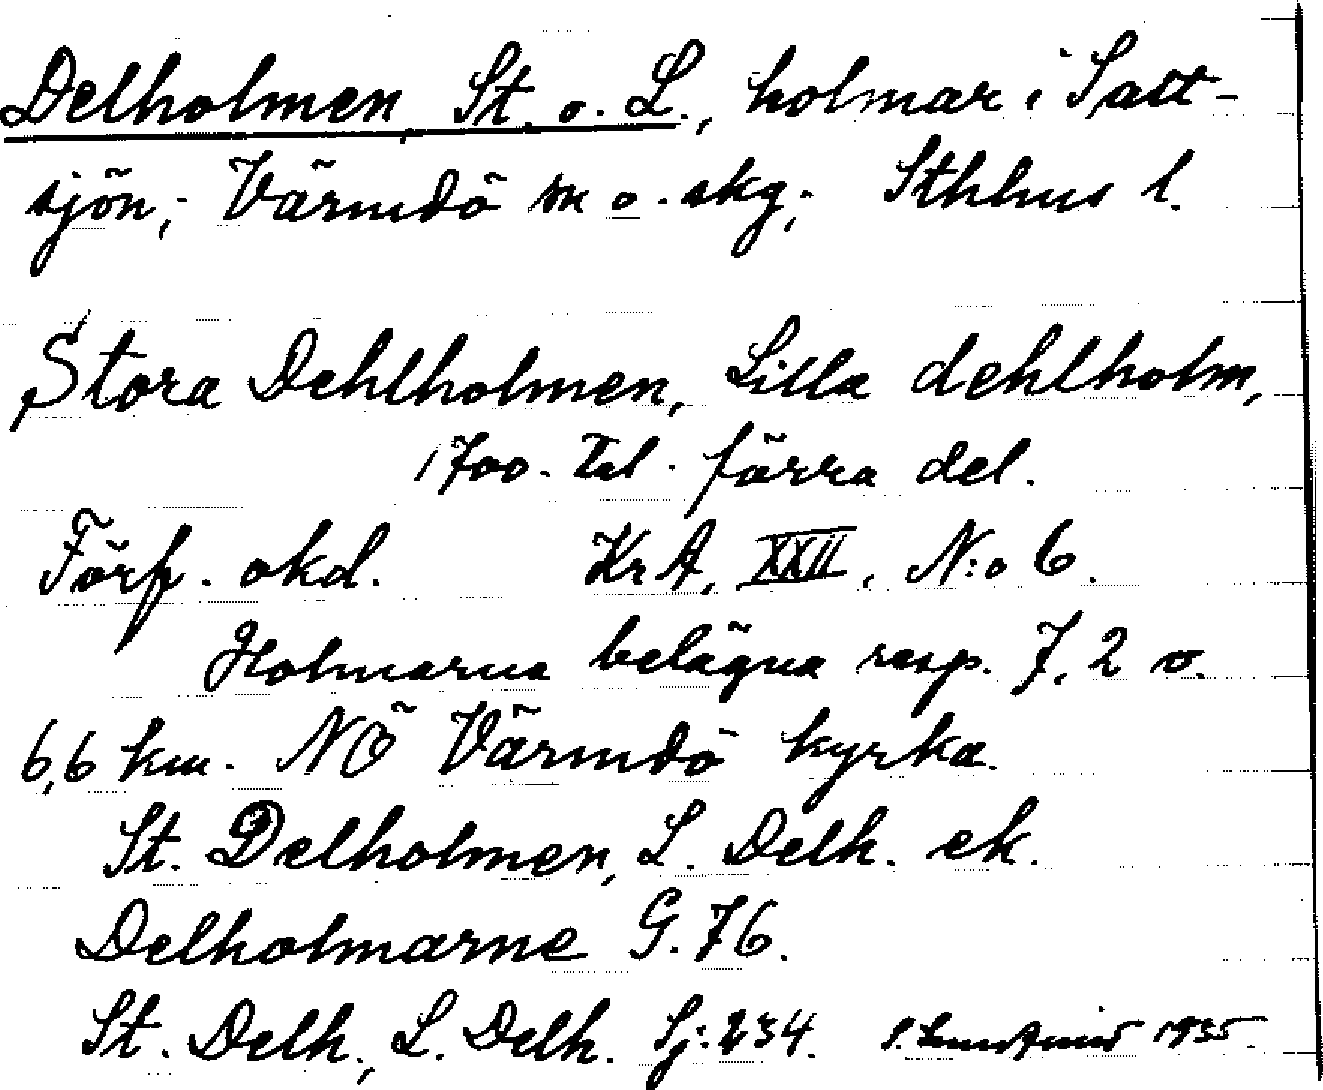 Delholmen, St. o. L., holmar i Salt-
sjön, Värmdö sn o. skg, Sthlms l.
Stora Dehlholmen, Lilla dehlholm,
1700-tal. förra del.
Förf. okd. KrA, XXII, N:o 6.
Holmarna belägna resp. 7,2 o.
6,6 km. NÖ Värmdö kyrka.
St. Delholmen, L. Delh. ek.
Delholmarne G. 76.
St. Delh., L. Delh. Sj: 234. S. 1935